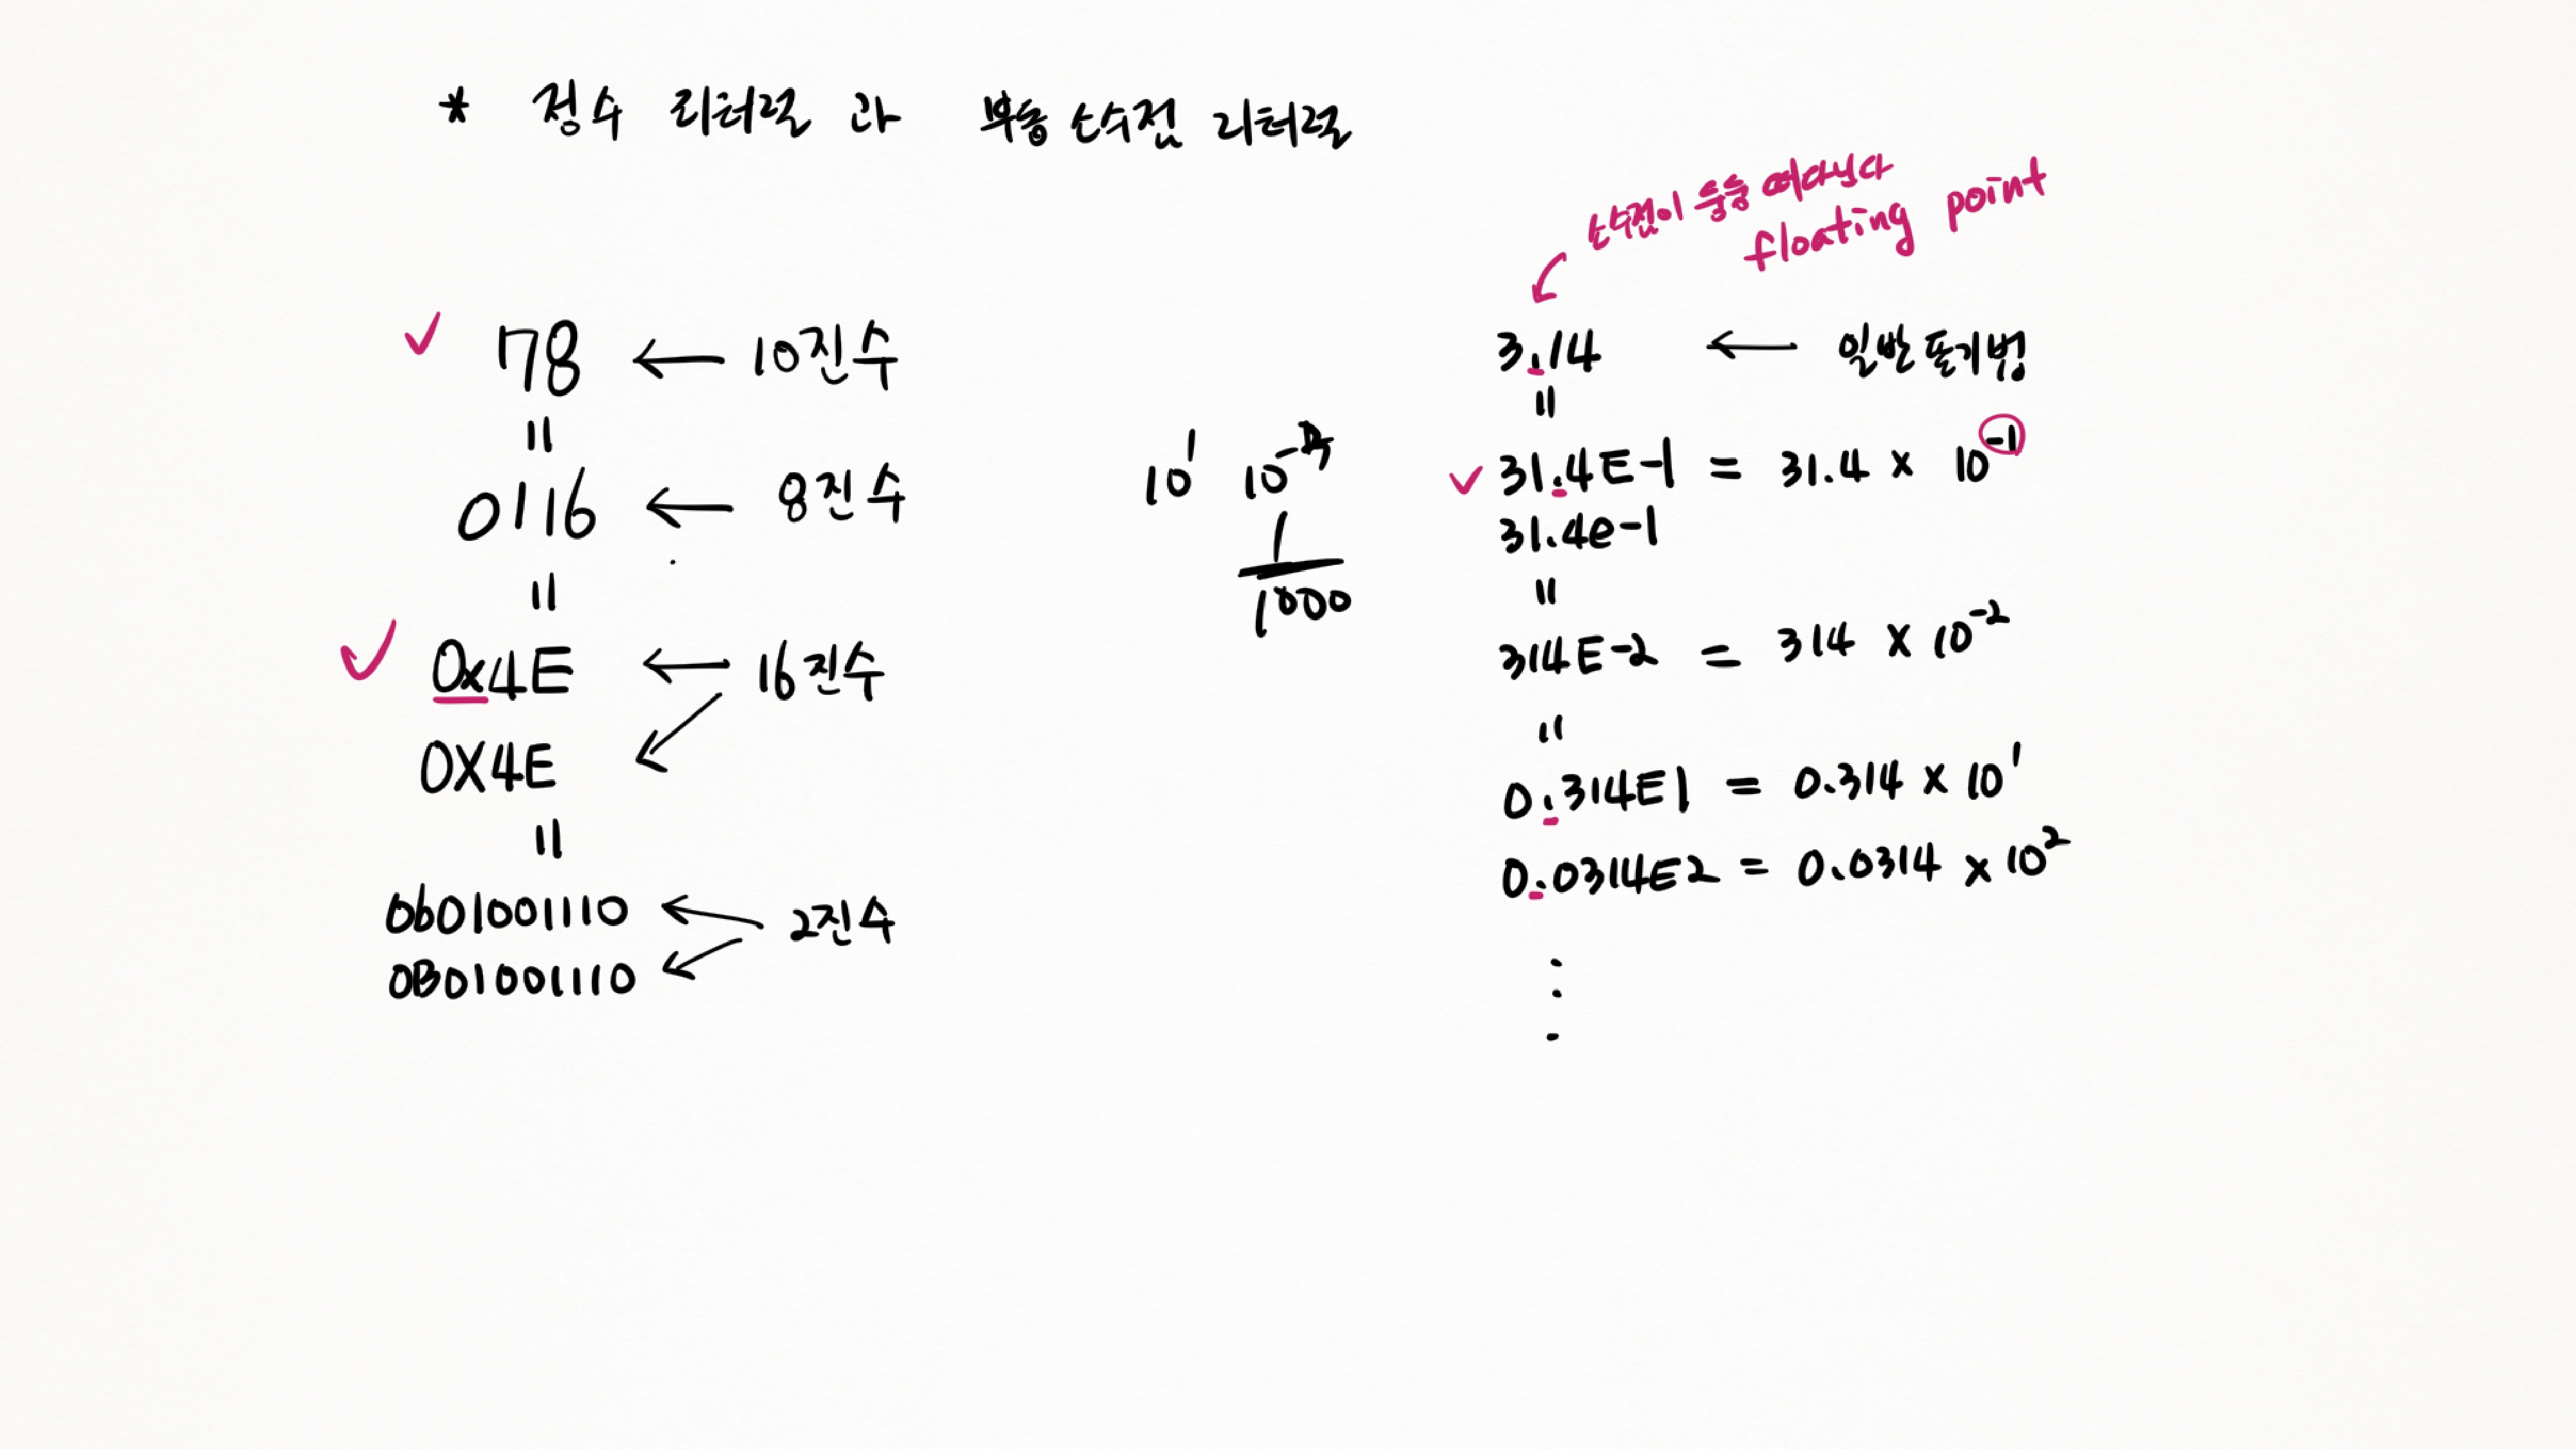 * 정수 리터럴 과 부동 소수점 리터럴
소수점이 둥둥 떠다닌다
floating point
✓ 78 ← 10진수
=
0116 ← 8진수
=
✓ 0x4E ← 16진수
0X4E
=
0b01001110 ← 2진수
0B01001110
10¹ 10⁻
1
1000
3.14 ← 일반 표기법
=
✓ 31.4E-1 = 31.4 × 10⁻¹
31.4e-1
=
314E-2 = 314 × 10⁻²
=
0.314E1 = 0.314 × 10¹
0.0314E2 = 0.0314 × 10²